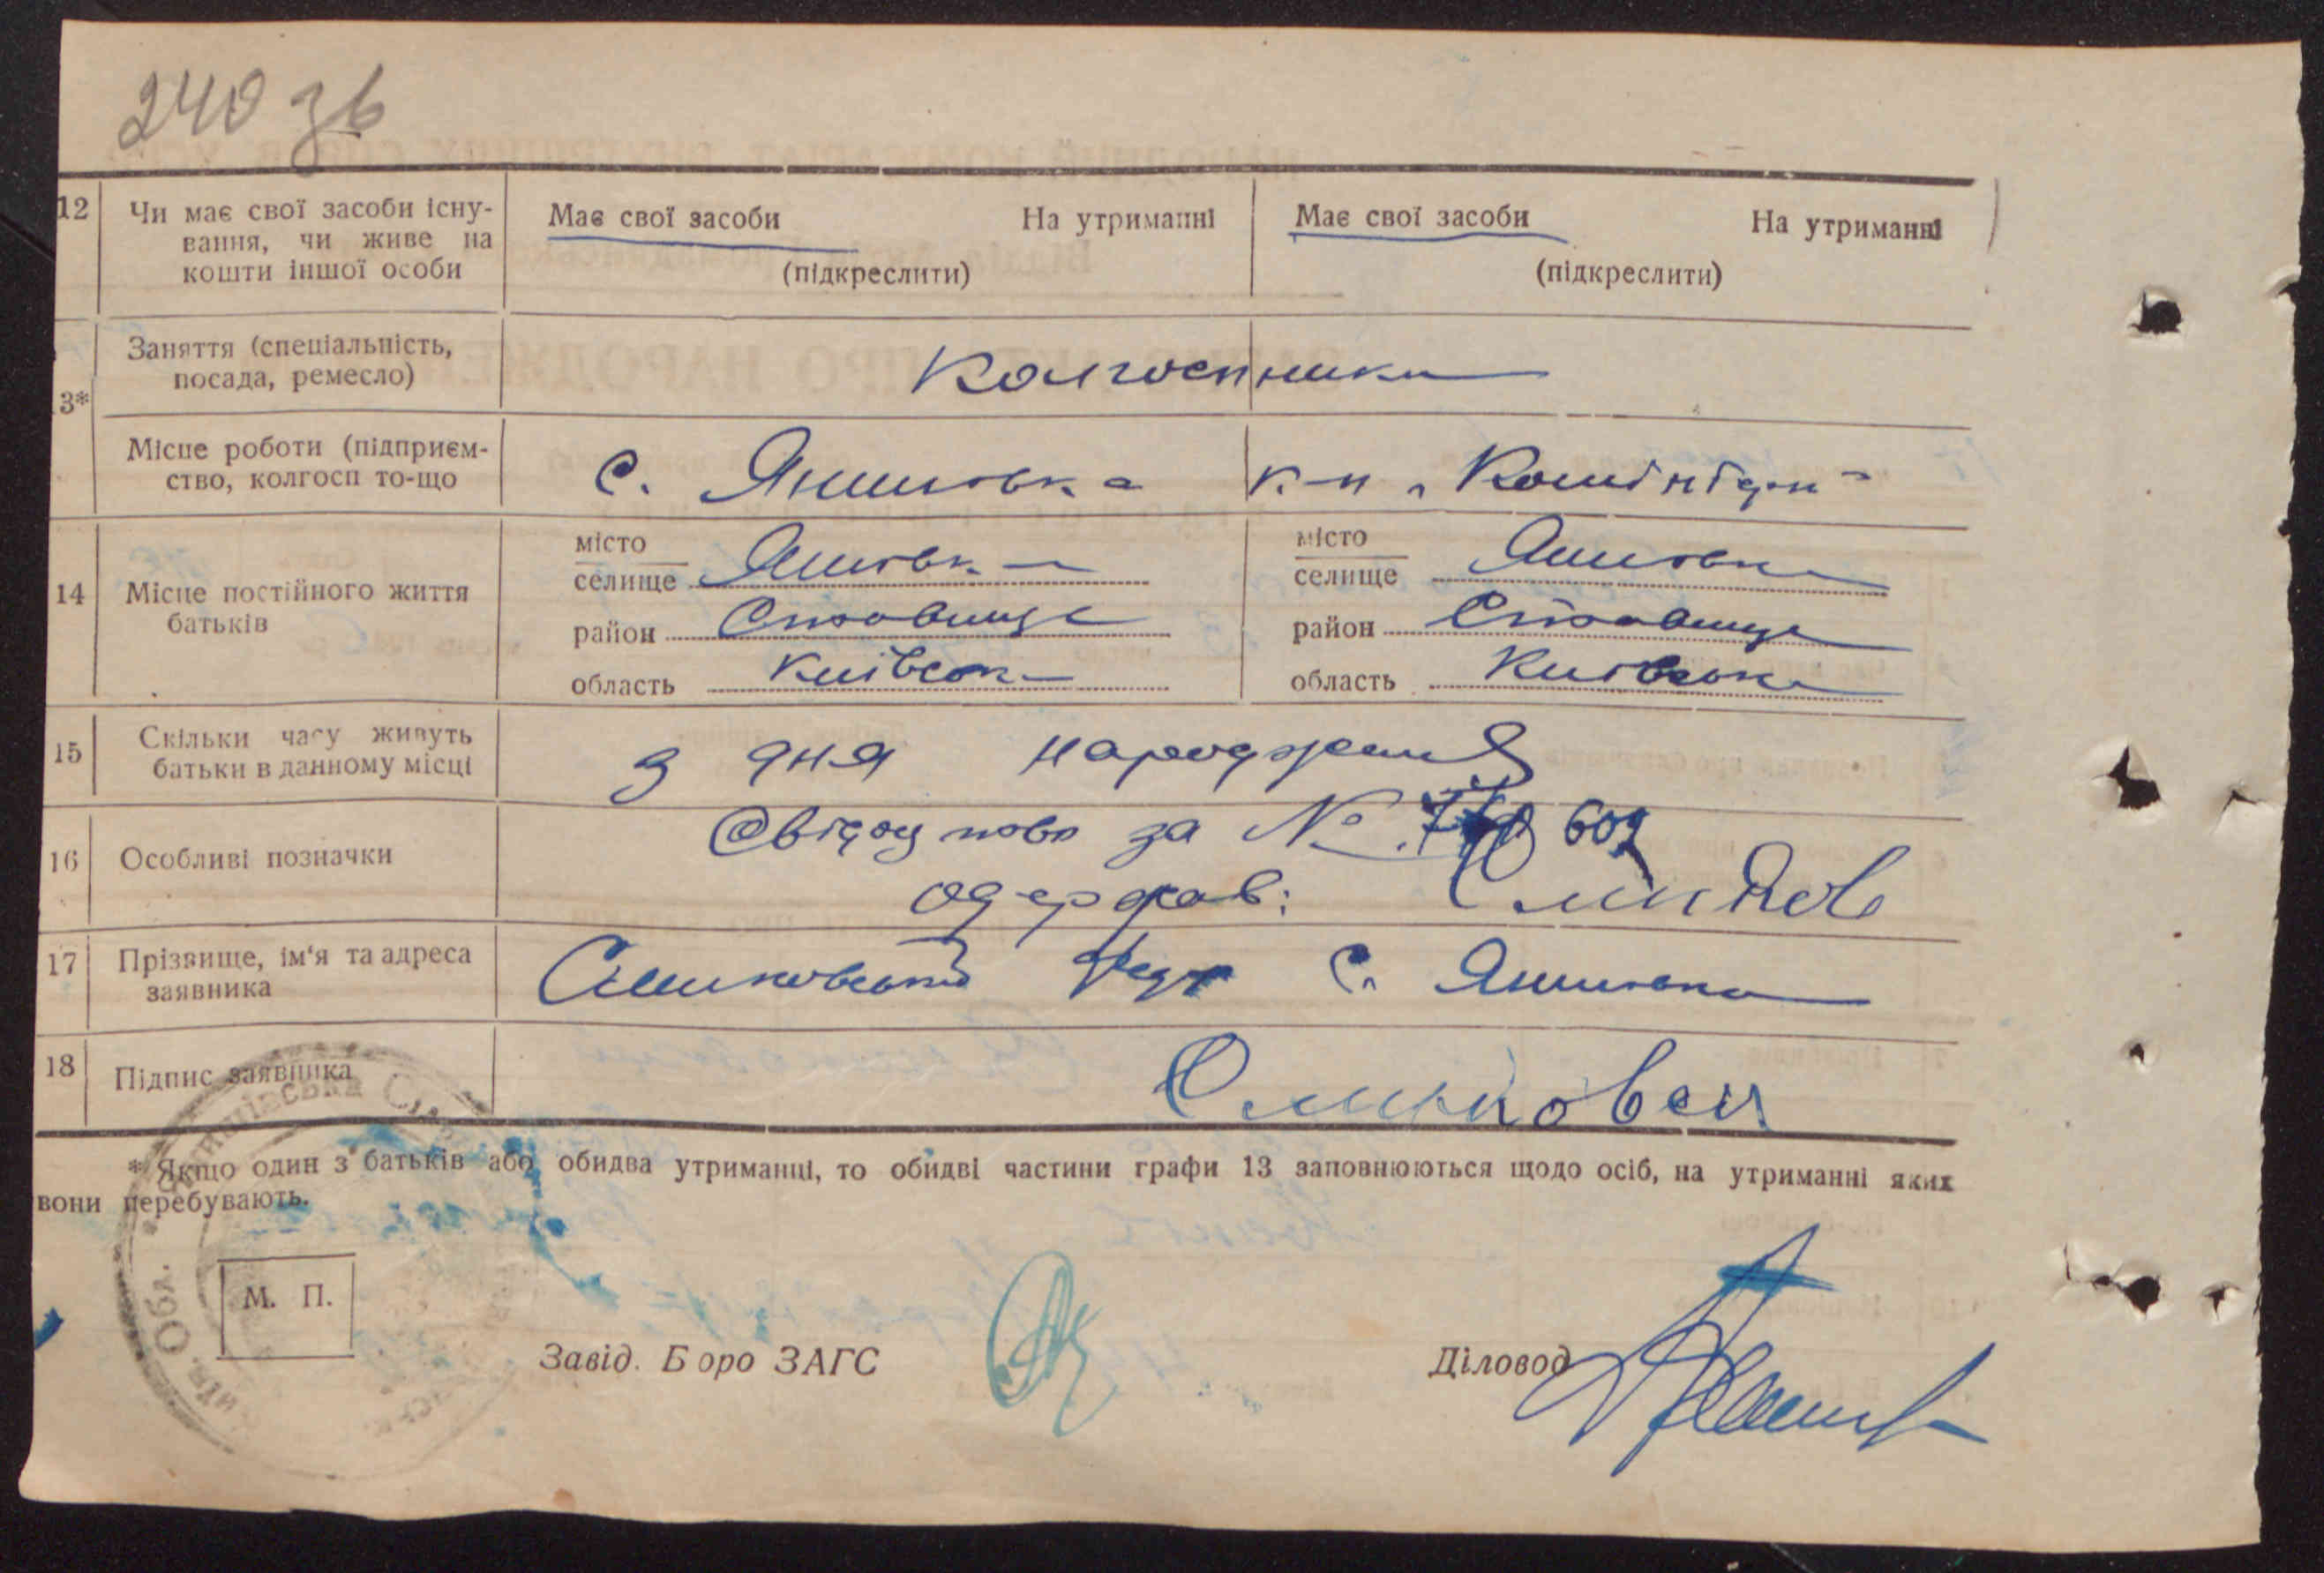 240 зв
12 Чи має свої засоби існу-
вання, чи живе на
кошти іншої особи
Має свої засоби На утриманні
(підкреслити)
Має свої засоби На утриманні
(підкреслити)
3*
Заняття (спеціальність,
посада, ремесло)
Колгоспники
Місце роботи (підприєм-
ство, колгосп то-що
с. Янишовка к-п „Комінтерн"
14 Місце постійного життя
батьків
місто
селище Янишовка
район Ставище
область Київська
місто
селище Янишовка
район Ставище
область Київська
15 Скільки часу живуть
батьки в данному місці
з дня народження
16 Особливі позначки
Свідоцтво за № 602
одержав:
17 Прізвище, ім'я та адреса
заявника
с. Янишовка
18 Підпис заявника
* Якщо один з батьків або обидва утриманці, то обидві частини графи 13 заповнюються щодо осіб, на утриманні яких
вони перебувають.
М. П.
Завід. Бюро ЗАГС
Діловод
Обл.